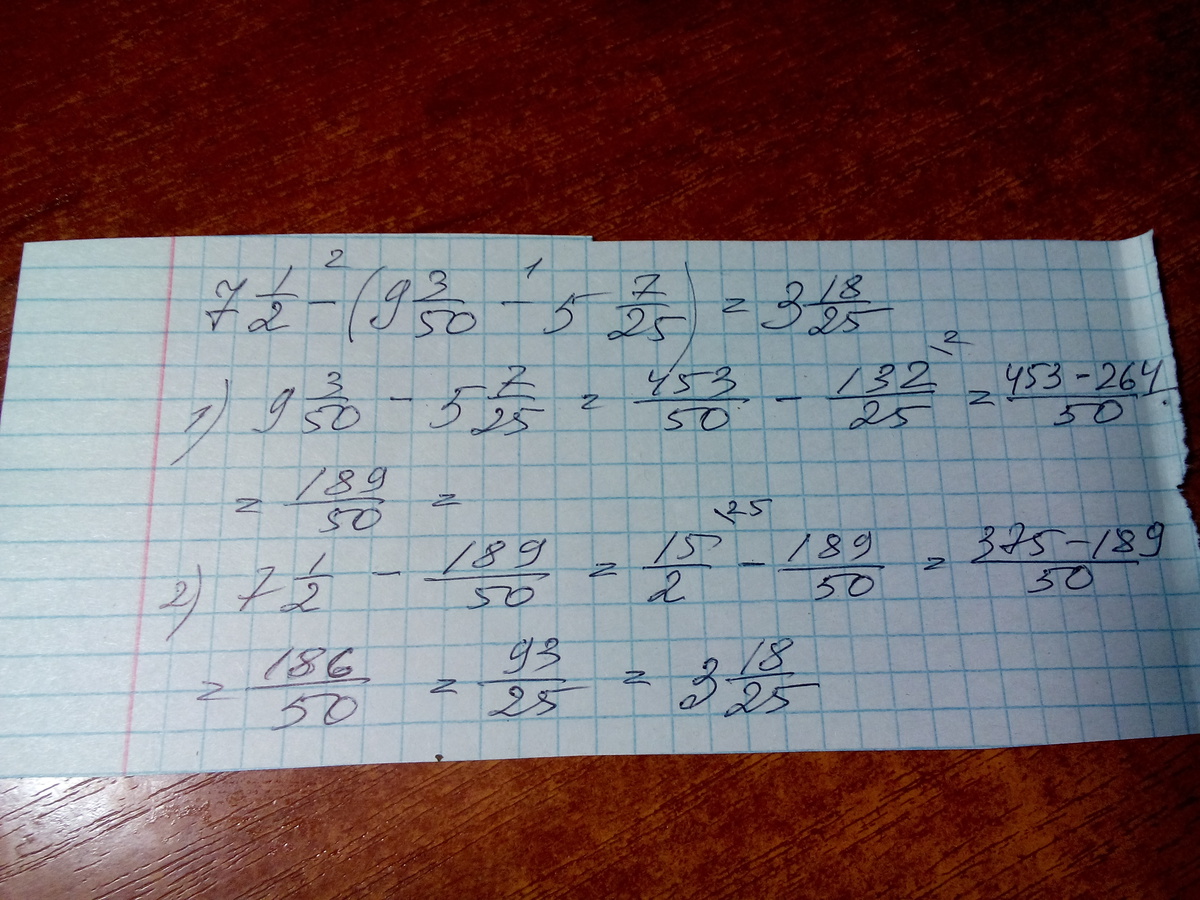 7 1/2 - (9 3/50 - 5 7/25) = 3 18/25
1) 9 3/50 - 5 7/25 = 453/50 - 132/25 \2 = 453-264/50
= 189/50 =
2) 7 1/2 - 189/50 = 15/2 \25 - 189/50 = 375-189/50
= 186/50 = 93/25 = 3 18/25